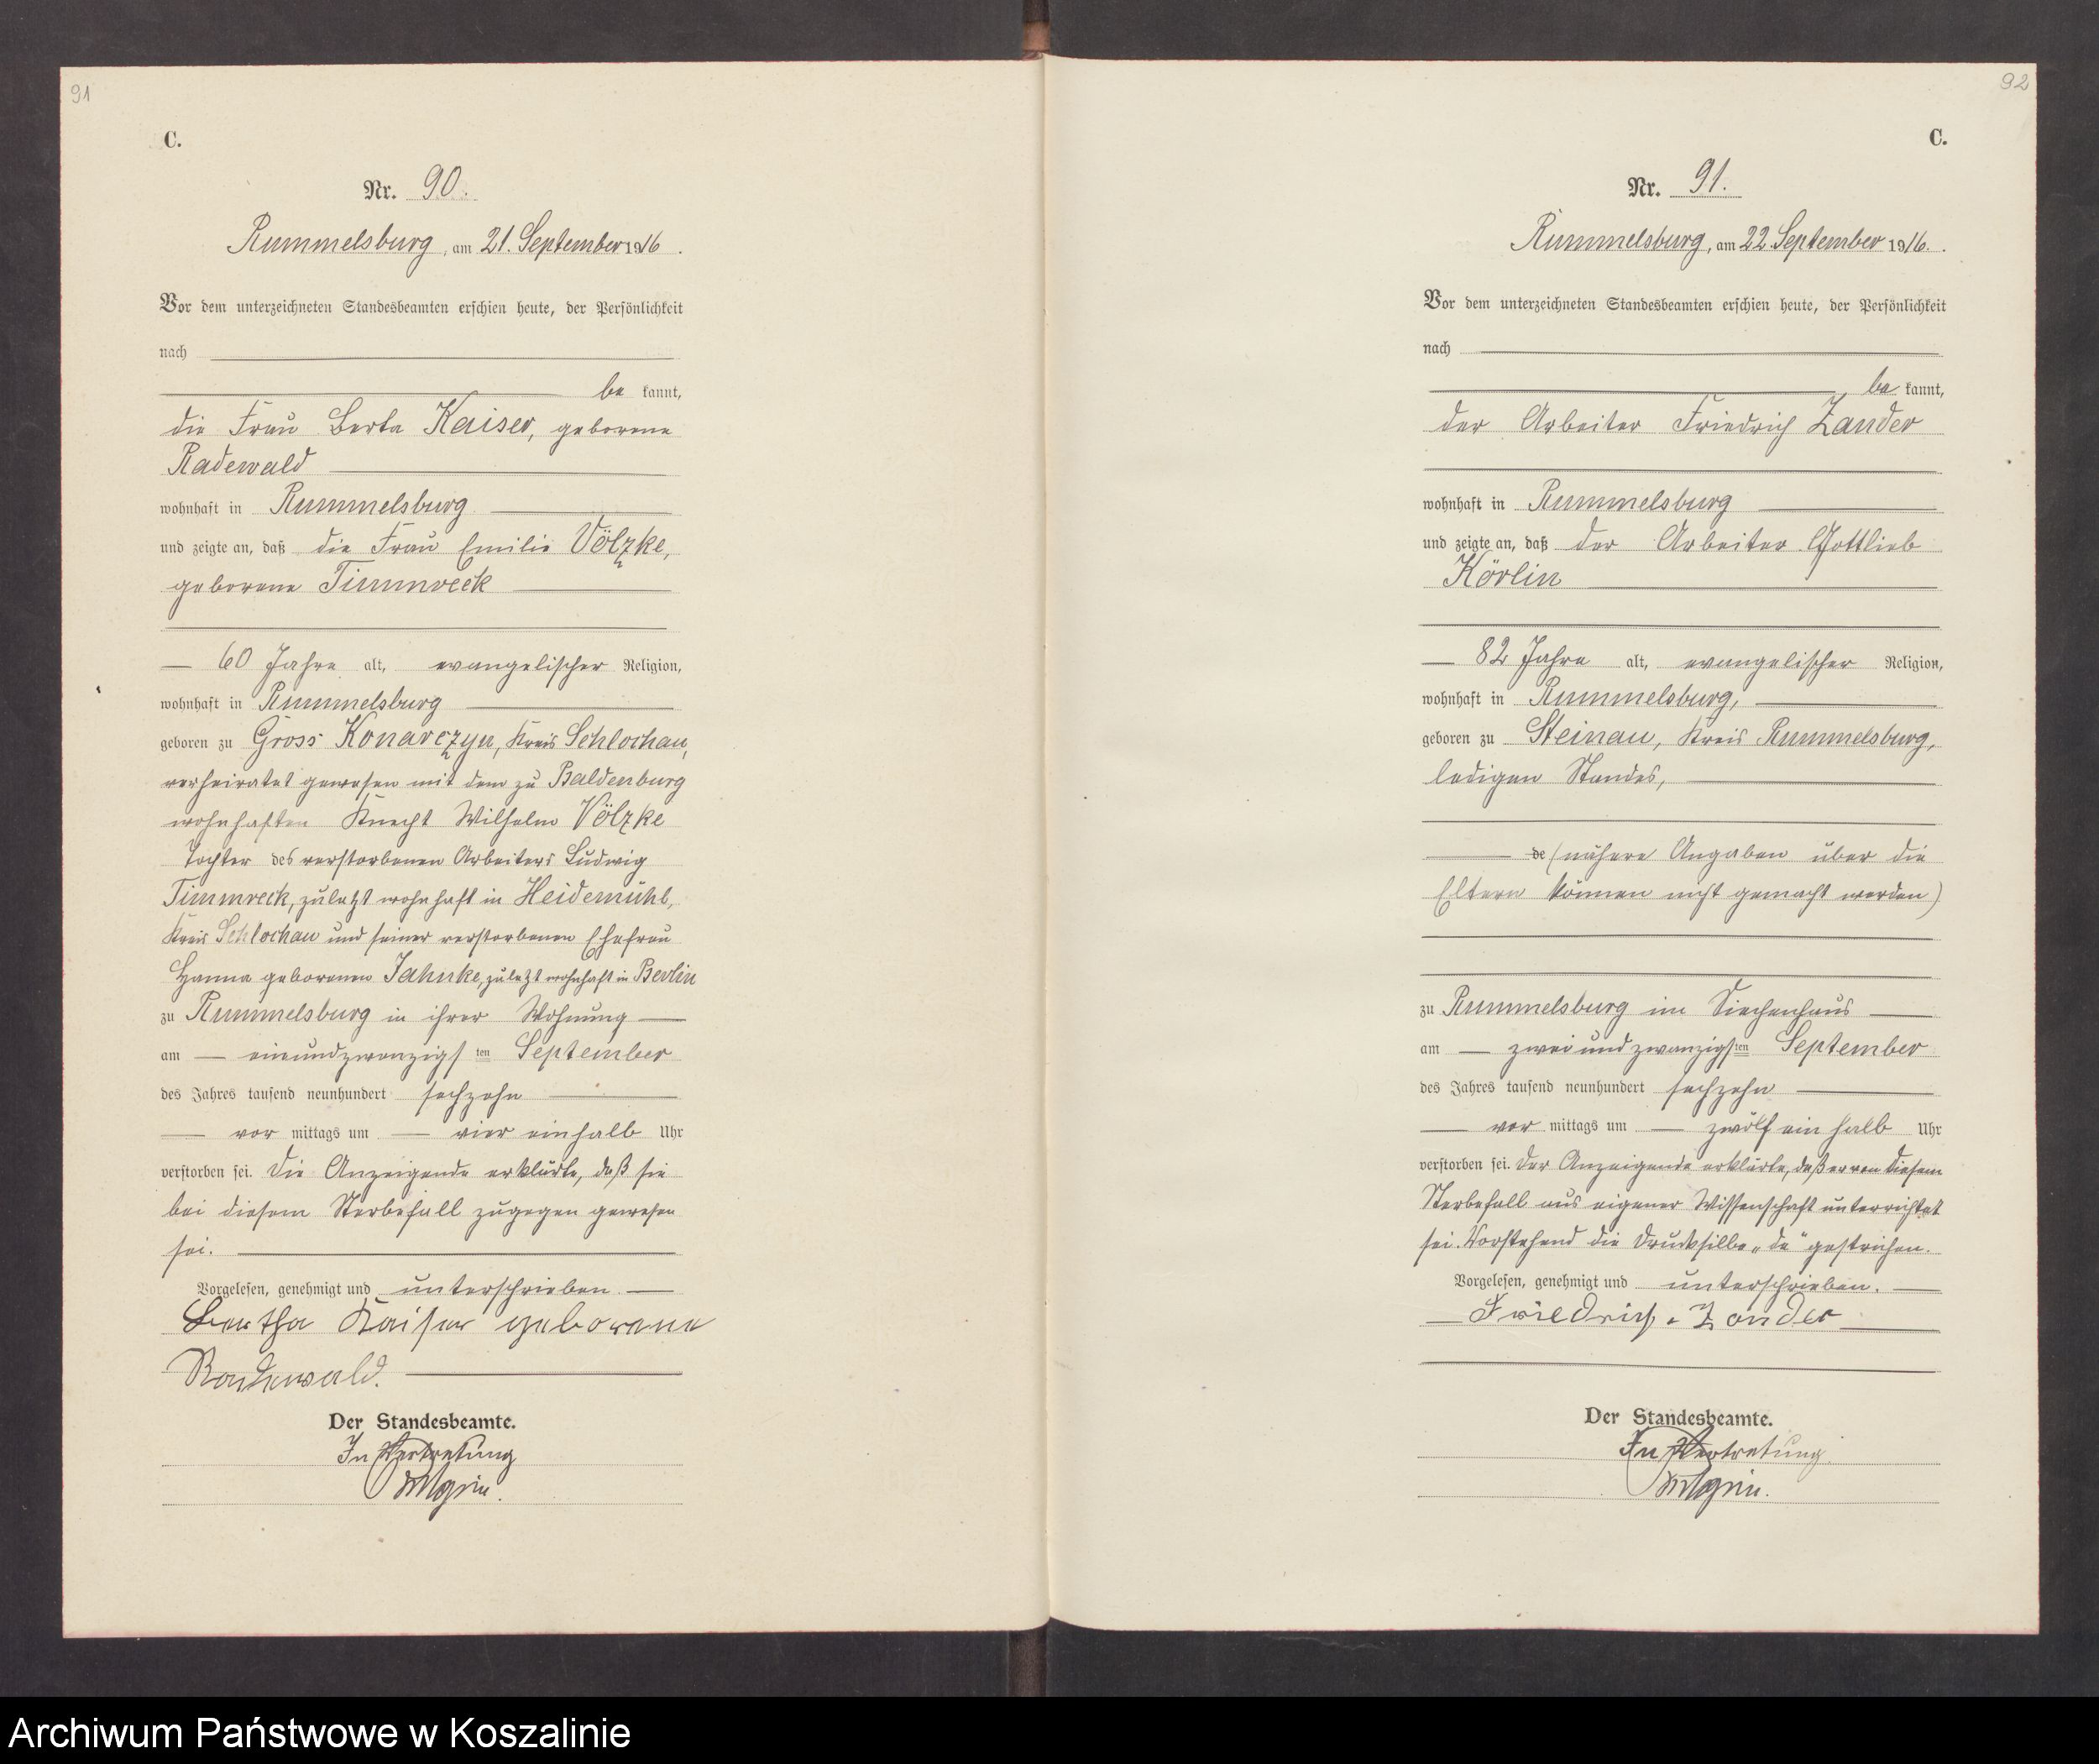 91
C.
Nr. 90.
Rummelsburg, am 21. September 1916.
Vor dem unterzeichneten Standesbeamten erschien heute, der Persönlichkeit
nach
be kannt,
die Frau Berta Kaiser, geborene
Radewald
wohnhaft in Rummelsburg
und zeigte an, daß die Frau Emilie Völzke,
geborene Timmreck
60 Jahre alt, evangelischer Religion,
wohnhaft in Rummelsburg
geboren zu Gross Konarczyn, Kreis Schlochau,
verheiratet gewesen mit dem zu Baldenburg
wohnhaften Knecht Wilhelm Völzke
Tochter des verstorbenen Arbeiters Ludwig
Timmreck, zuletzt wohnhaft in Heidemühl,
Kreis Schlochau und seiner verstorbenen Ehefrau
Hanna geborenen Jahnke, zuletzt wohnhaft in Berlin
zu Rummelsburg in ihrer Wohnung
am einundzwanzigsten September
des Jahres tausend neunhundert sechzehn
vor mittags um vier einhalb Uhr
verstorben sei. Die Anzeigende erklärte, daß sie
bei diesem Sterbefall zugegen gewesen
sei.
Vorgelesen, genehmigt und unterschrieben.
Bertha Kaiser geborene
Radewald.
Der Standesbeamte.
In Vertretung
92
C.
Nr. 91.
Rummelsburg, am 22. September 1916.
Vor dem unterzeichneten Standesbeamten erschien heute, der Persönlichkeit
nach
be kannt,
der Arbeiter Friedrich Zander
wohnhaft in Rummelsburg
und zeigte an, daß der Arbeiter Gottlieb
Körlin
82 Jahre alt, evangelischer Religion,
wohnhaft in Rummelsburg,
geboren zu Steinau, Kreis Rummelsburg,
ledigen Standes,
de (nähere Angaben über die
Eltern können nicht gemacht werden)
zu Rummelsburg im Siechenhaus
am zweiundzwanzigsten September
des Jahres tausend neunhundert sechzehn
vor mittags um zwölf ein halb Uhr
verstorben sei. Der Anzeigende erklärte, daß er von diesem
Sterbefall aus eigener Wissenschaft unterrichtet
sei. Vorstehend die Drucksilbe „de" gestrichen.
Vorgelesen, genehmigt und unterschrieben.
Friedrich Zander
Der Standesbeamte.
In Vertretung
Archiwum Państwowe w Koszalinie